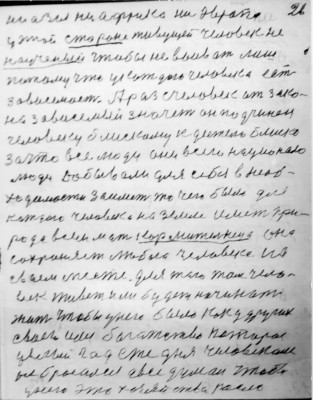 ни азел ни африка ни Европа 26
у той стороне живущей человек не
научений чтобы не воеват лиш
потому что у каждого человека ест
зависемост. А раз человек от зако-
на зависемый значет он подчинен
человеку близкому к детело близко
за то все люди они всего национално
люди Добывали для себя в необ-
ходимости занмет то чего было для
каждого человека на земле имет при-
рода всем мат кормителница она
сохраняет любого человека на
своем месте. для того там чело-
век живет или будет начинат
жит чтобы у него было как у других
своего или богатство которое
целый год сте дня человеком
не бросался а все думал чтобы
у него это хозяйства росло